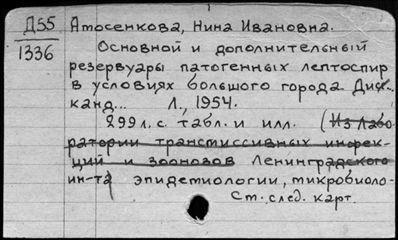 Д55 Атосенкова, Нина Ивановна.
1336 Основной и дополнительный
резервуары патогенных лептоспир
в условиях большого города Дисс..
канд... Л., 1954.
299 л. с. табл. и илл. (Из лабо-
ратории трансмиссивных инфек-
ций и зоонозов Ленинградского
ин-та эпидемиологии, микробиоло-
Ст. след. карт.